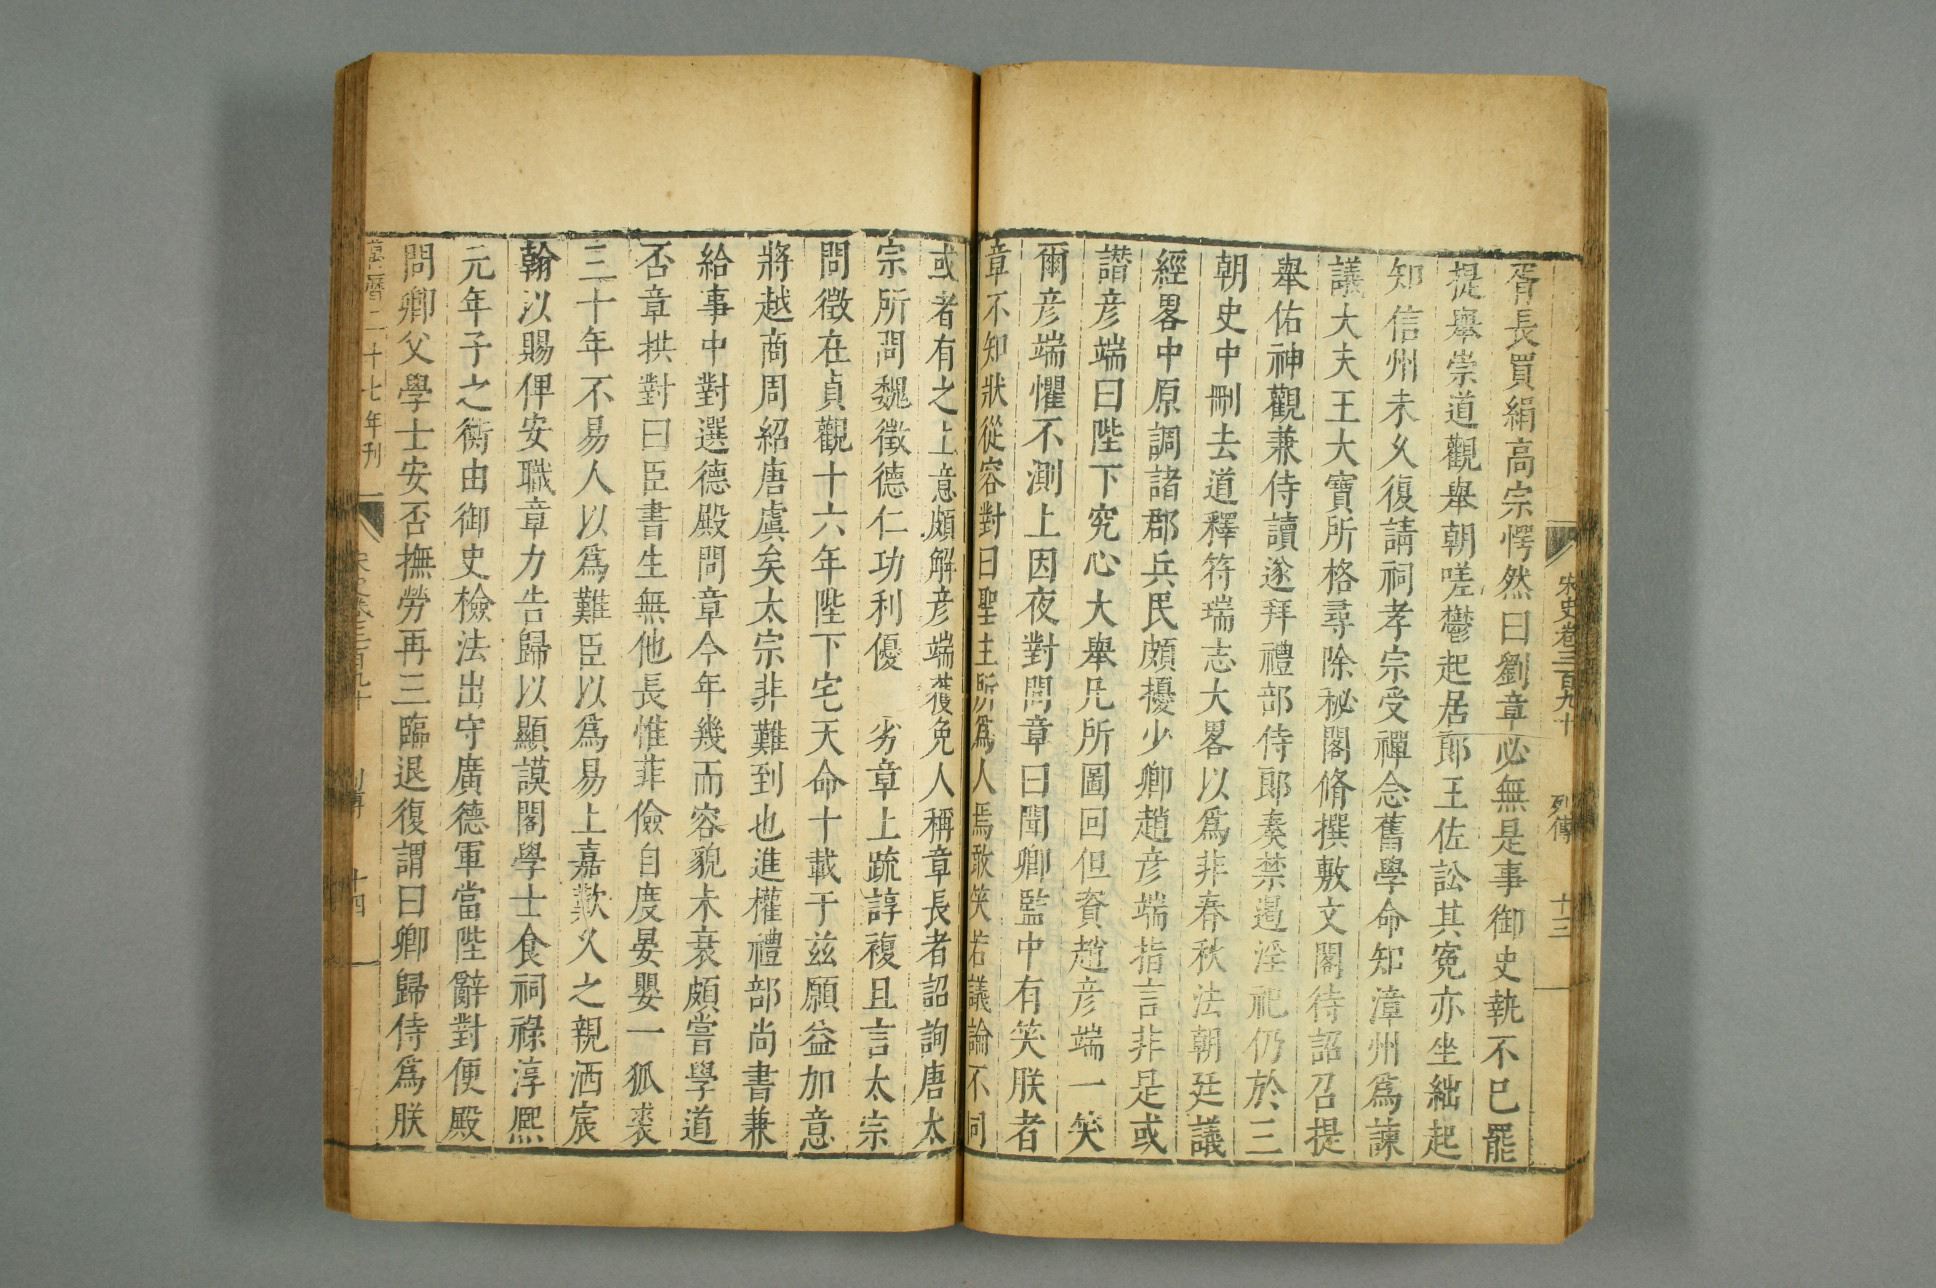 宋史卷三百九十 列傳 十三
胥長買絹高宗愕然曰劉章必無是事御史執不已罷
提舉崇道觀舉朝嗟鬱起居郎王佐訟其寃亦坐絀起
知信州未久復請祠孝宗受禪念舊學命知漳州爲諫
議大夫王大寶所格尋除秘閣脩撰敷文閣待詔召提
舉佑神觀兼侍讀遂拜禮部侍郎奏禁遏淫祀仍於三
朝史中刪去道釋符瑞志大畧以爲非春秋法朝廷議
經畧中原調諸郡兵民頗擾少卿趙彦端指言非是或
譖彦端曰陛下究心大舉凡所圖回但資趙彦端一笑
爾彦端懼不測上因夜對問章曰聞卿監中有笑朕者
章不知狀從容對曰聖主所爲人焉敢笑若議論不同
或者有之上意頗解彦端獲免人稱章長者詔詢唐太
宗所問魏徵德仁功利優 劣章上疏諄複且言太宗
問徵在貞觀十六年陛下宅天命十載于兹願益加意
將越商周紹唐虞矣太宗非難到也進權禮部尚書兼
給事中對選德殿問章今年幾而容貌未衰頗嘗學道
否章拱對曰臣書生無他長惟菲儉自度晏嬰一狐裘
三十年不易人以爲難臣以爲易上嘉歎久之親洒宸
翰以賜俾安職章力告歸以顯謨閣學士食祠祿淳熙
元年子之衡由御史檢法出守廣德軍當陛辭對便殿
問卿父學士安否撫勞再三臨退復謂曰卿歸侍爲朕
萬曆二十七年刊 宋史卷三百九十 列傳 十四